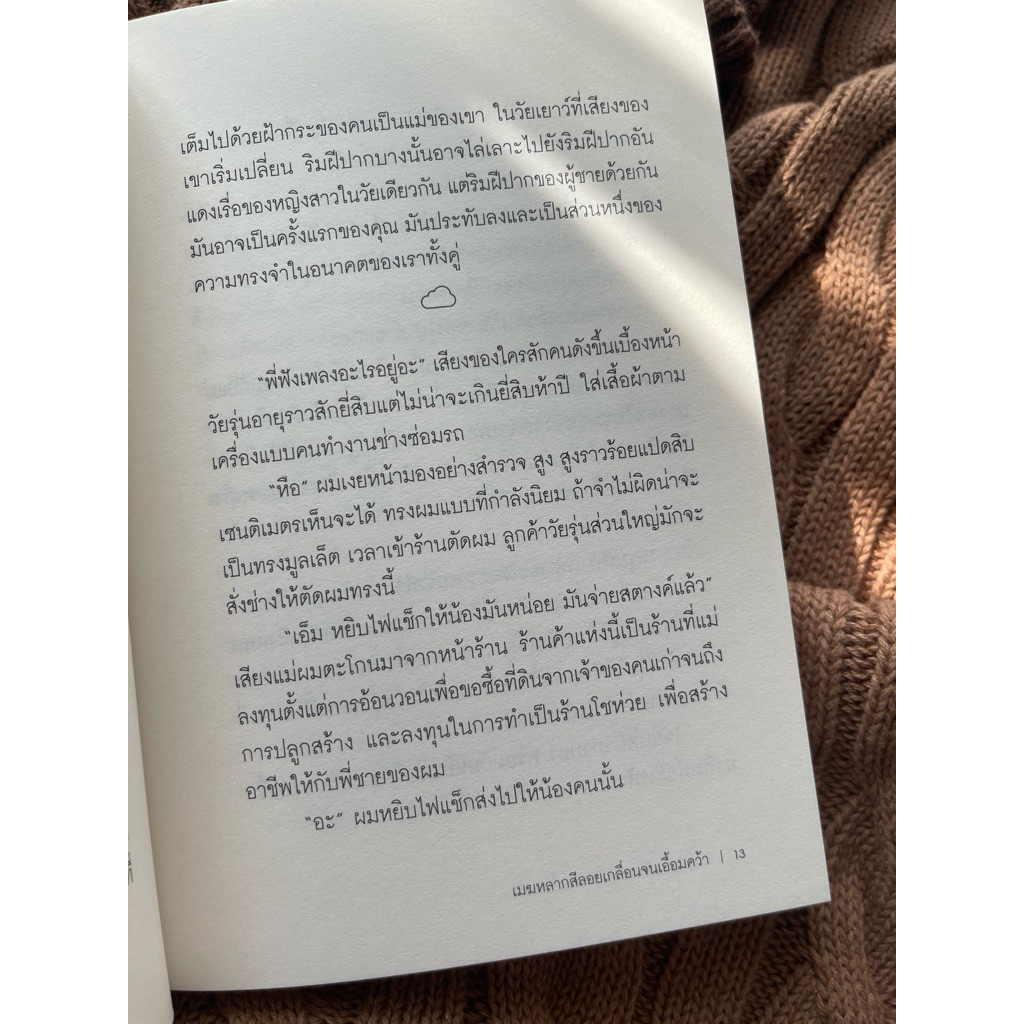 เต็มไปด้วยฝ้ากระของคนเป็นแม่ของเขา ในวัยเยาว์ที่เสียงของ
เขาเริ่มเปลี่ยน ริมฝีปากบางนั้นอาจไล่เลาะไปยังริมฝีปากอัน
แดงเรื่อของหญิงสาวในวัยเดียวกัน แต่ริมฝีปากของผู้ชายด้วยกัน
มันอาจเป็นครั้งแรกของคุณ มันประทับลงและเป็นส่วนหนึ่งของ
ความทรงจำในอนาคตของเราทั้งคู่
“พี่ฟังเพลงอะไรอยู่อะ” เสียงของใครสักคนดังขึ้นเบื้องหน้า
วัยรุ่นอายุราวสักยี่สิบแต่ไม่น่าจะเกินยี่สิบห้าปี ใส่เสื้อผ้าตาม
เครื่องแบบคนทำงานช่างซ่อมรถ
“หือ” ผมเงยหน้ามองอย่างสำรวจ สูง สูงราวร้อยแปดสิบ
เซนติเมตรเห็นจะได้ ทรงผมแบบที่กำลังนิยม ถ้าจำไม่ผิดน่าจะ
เป็นทรงมูลเล็ต เวลาเข้าร้านตัดผม ลูกค้าวัยรุ่นส่วนใหญ่มักจะ
สั่งช่างให้ตัดผมทรงนี้
“เอ็ม หยิบไฟแช็กให้น้องมันหน่อย มันจ่ายสตางค์แล้ว”
เสียงแม่ผมตะโกนมาจากหน้าร้าน ร้านค้าแห่งนี้เป็นร้านที่แม่
ลงทุนตั้งแต่การอ้อนวอนเพื่อขอซื้อที่ดินจากเจ้าของคนเก่าจนถึง
การปลูกสร้าง และลงทุนในการทำเป็นร้านโชห่วย เพื่อสร้าง
อาชีพให้กับพี่ชายของผม
“อะ” ผมหยิบไฟแช็กส่งไปให้น้องคนนั้น
เมฆหลากสีลอยเกลื่อนจนเอื้อมคว้า | 13
ที่